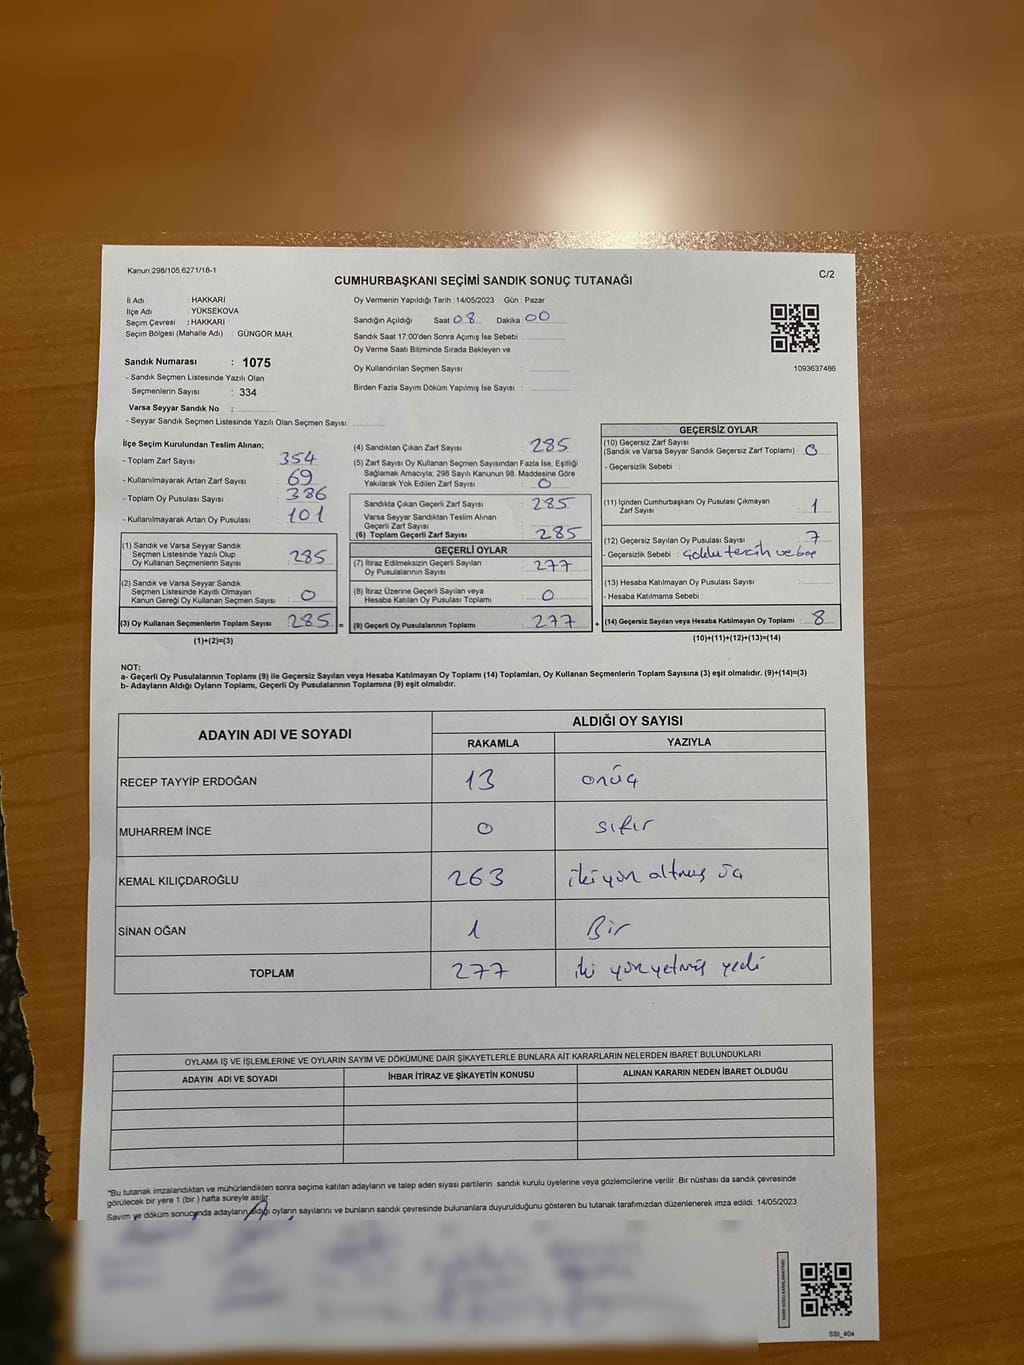 Kanun:298/105,6271/18-1
C/2
CUMHURBAŞKANI SEÇİMİ SANDIK SONUÇ TUTANAĞI
İl Adı : HAKKARİ
İlçe Adı : YÜKSEKOVA
Seçim Çevresi : HAKKARİ
Seçim Bölgesi (Mahalle Adı) : GÜNGÖR MAH.
Oy Vermenin Yapıldığı Tarih : 14/05/2023 Gün : Pazar
Sandığın Açıldığı Saat 08 Dakika 00
Sandık Saat 17.00'den Sonra Açımış İse Sebebi :
Oy Verme Saati Bitiminde Sırada Bekleyen ve
Oy Kullandırılan Seçmen Sayısı :
Birden Fazla Sayım Döküm Yapılmış İse Sayısı :
1093637486
Sandık Numarası : 1075
- Sandık Seçmen Listesinde Yazılı Olan
Seçmenlerin Sayısı : 334
Varsa Seyyar Sandık No :
- Seyyar Sandık Seçmen Listesinde Yazılı Olan Seçmen Sayısı:
İlçe Seçim Kurulundan Teslim Alınan;
- Toplam Zarf Sayısı : 354
- Kullanılmayarak Artan Zarf Sayısı : 69
- Toplam Oy Pusulası Sayısı : 386
- Kullanılmayarak Artan Oy Pusulası : 101
(1) Sandık ve Varsa Seyyar Sandık
Seçmen Listesinde Yazılı Olup
Oy Kullanan Seçmenlerin Sayısı : 285
(2) Sandık ve Varsa Seyyar Sandık
Seçmen Listesinde Kayıtlı Olmayan
Kanun Gereği Oy Kullanan Seçmen Sayısı : 0
(3) Oy Kullanan Seçmenlerin Toplam Sayısı : 285 =
(1)+(2)=(3)
(4) Sandıktan Çıkan Zarf Sayısı : 285
(5) Zarf Sayısı Oy Kullanan Seçmen Sayısından Fazla İse, Eşitliği
Sağlamak Amacıyla; 298 Sayılı Kanunun 98. Maddesine Göre
Yakılarak Yok Edilen Zarf Sayısı : 0
Sandıkta Çıkan Geçerli Zarf Sayısı : 285
Varsa Seyyar Sandıktan Teslim Alınan
Geçerli Zarf Sayısı :
(6) Toplam Geçerli Zarf Sayısı : 285
GEÇERLİ OYLAR
(7) İtiraz Edilmeksizin Geçerli Sayılan
Oy Pusulalarının Sayısı : 277
(8) İtiraz Üzerine Geçerli Sayılan veya
Hesaba Katılan Oy Pusulası Toplamı : 0
(9) Geçerli Oy Pusulalarının Toplamı : 277 +
GEÇERSİZ OYLAR
(10) Geçersiz Zarf Sayısı
(Sandık ve Varsa Seyyar Sandık Geçersiz Zarf Toplamı) : 0
- Geçersizlik Sebebi :
(11) İçinden Cumhurbaşkanı Oy Pusulası Çıkmayan
Zarf Sayısı : 1
(12) Geçersiz Sayılan Oy Pusulası Sayısı : 7
- Geçersizlik Sebebi : çoklu tercih ve boş
(13) Hesaba Katılmayan Oy Pusulası Sayısı :
- Hesaba Katılmama Sebebi :
(14) Geçersiz Sayılan veya Hesaba Katılmayan Oy Toplamı : 8
(10)+(11)+(12)+(13)=(14)
NOT:
a- Geçerli Oy Pusulalarının Toplamı (9) ile Geçersiz Sayılan veya Hesaba Katılmayan Oy Toplamı (14) Toplamları, Oy Kullanan Seçmenlerin Toplam Sayısına (3) eşit olmalıdır. (9)+(14)=(3)
b- Adayların Aldığı Oyların Toplamı, Geçerli Oy Pusulalarının Toplamına (9) eşit olmalıdır.
ADAYIN ADI VE SOYADI
ALDIĞI OY SAYISI
RAKAMLA YAZIYLA
RECEP TAYYİP ERDOĞAN 13 onüç
MUHARREM İNCE 0 sıfır
KEMAL KILIÇDAROĞLU 263 iki yüz altmış üç
SİNAN OĞAN 1 Bir
TOPLAM 277 iki yüz yetmiş yedi
OYLAMA İŞ VE İŞLEMLERİNE VE OYLARIN SAYIM VE DÖKÜMÜNE DAİR ŞİKAYETLERLE BUNLARA AİT KARARLARIN NELERDEN İBARET BULUNDUKLARI
ADAYIN ADI VE SOYADI İHBAR İTİRAZ VE ŞİKAYETİN KONUSU ALINAN KARARIN NEDEN İBARET OLDUĞU
*Bu tutanak imzalandıktan ve mühürlendikten sonra seçime katılan adayların ve talep eden siyasi partilerin sandık kurulu üyelerine veya gözlemcilerine verilir. Bir nüshası da sandık çevresinde
görülecek bir yere 1 (bir ) hafta süreyle asılır.
Sayım ve döküm sonucunda adayların aldığı oyların sayılarını ve bunların sandık çevresinde bulunanlara duyurulduğunu gösteren bu tutanak tarafımızdan düzenlenerek imza edildi. 14/05/2023
SSI_404